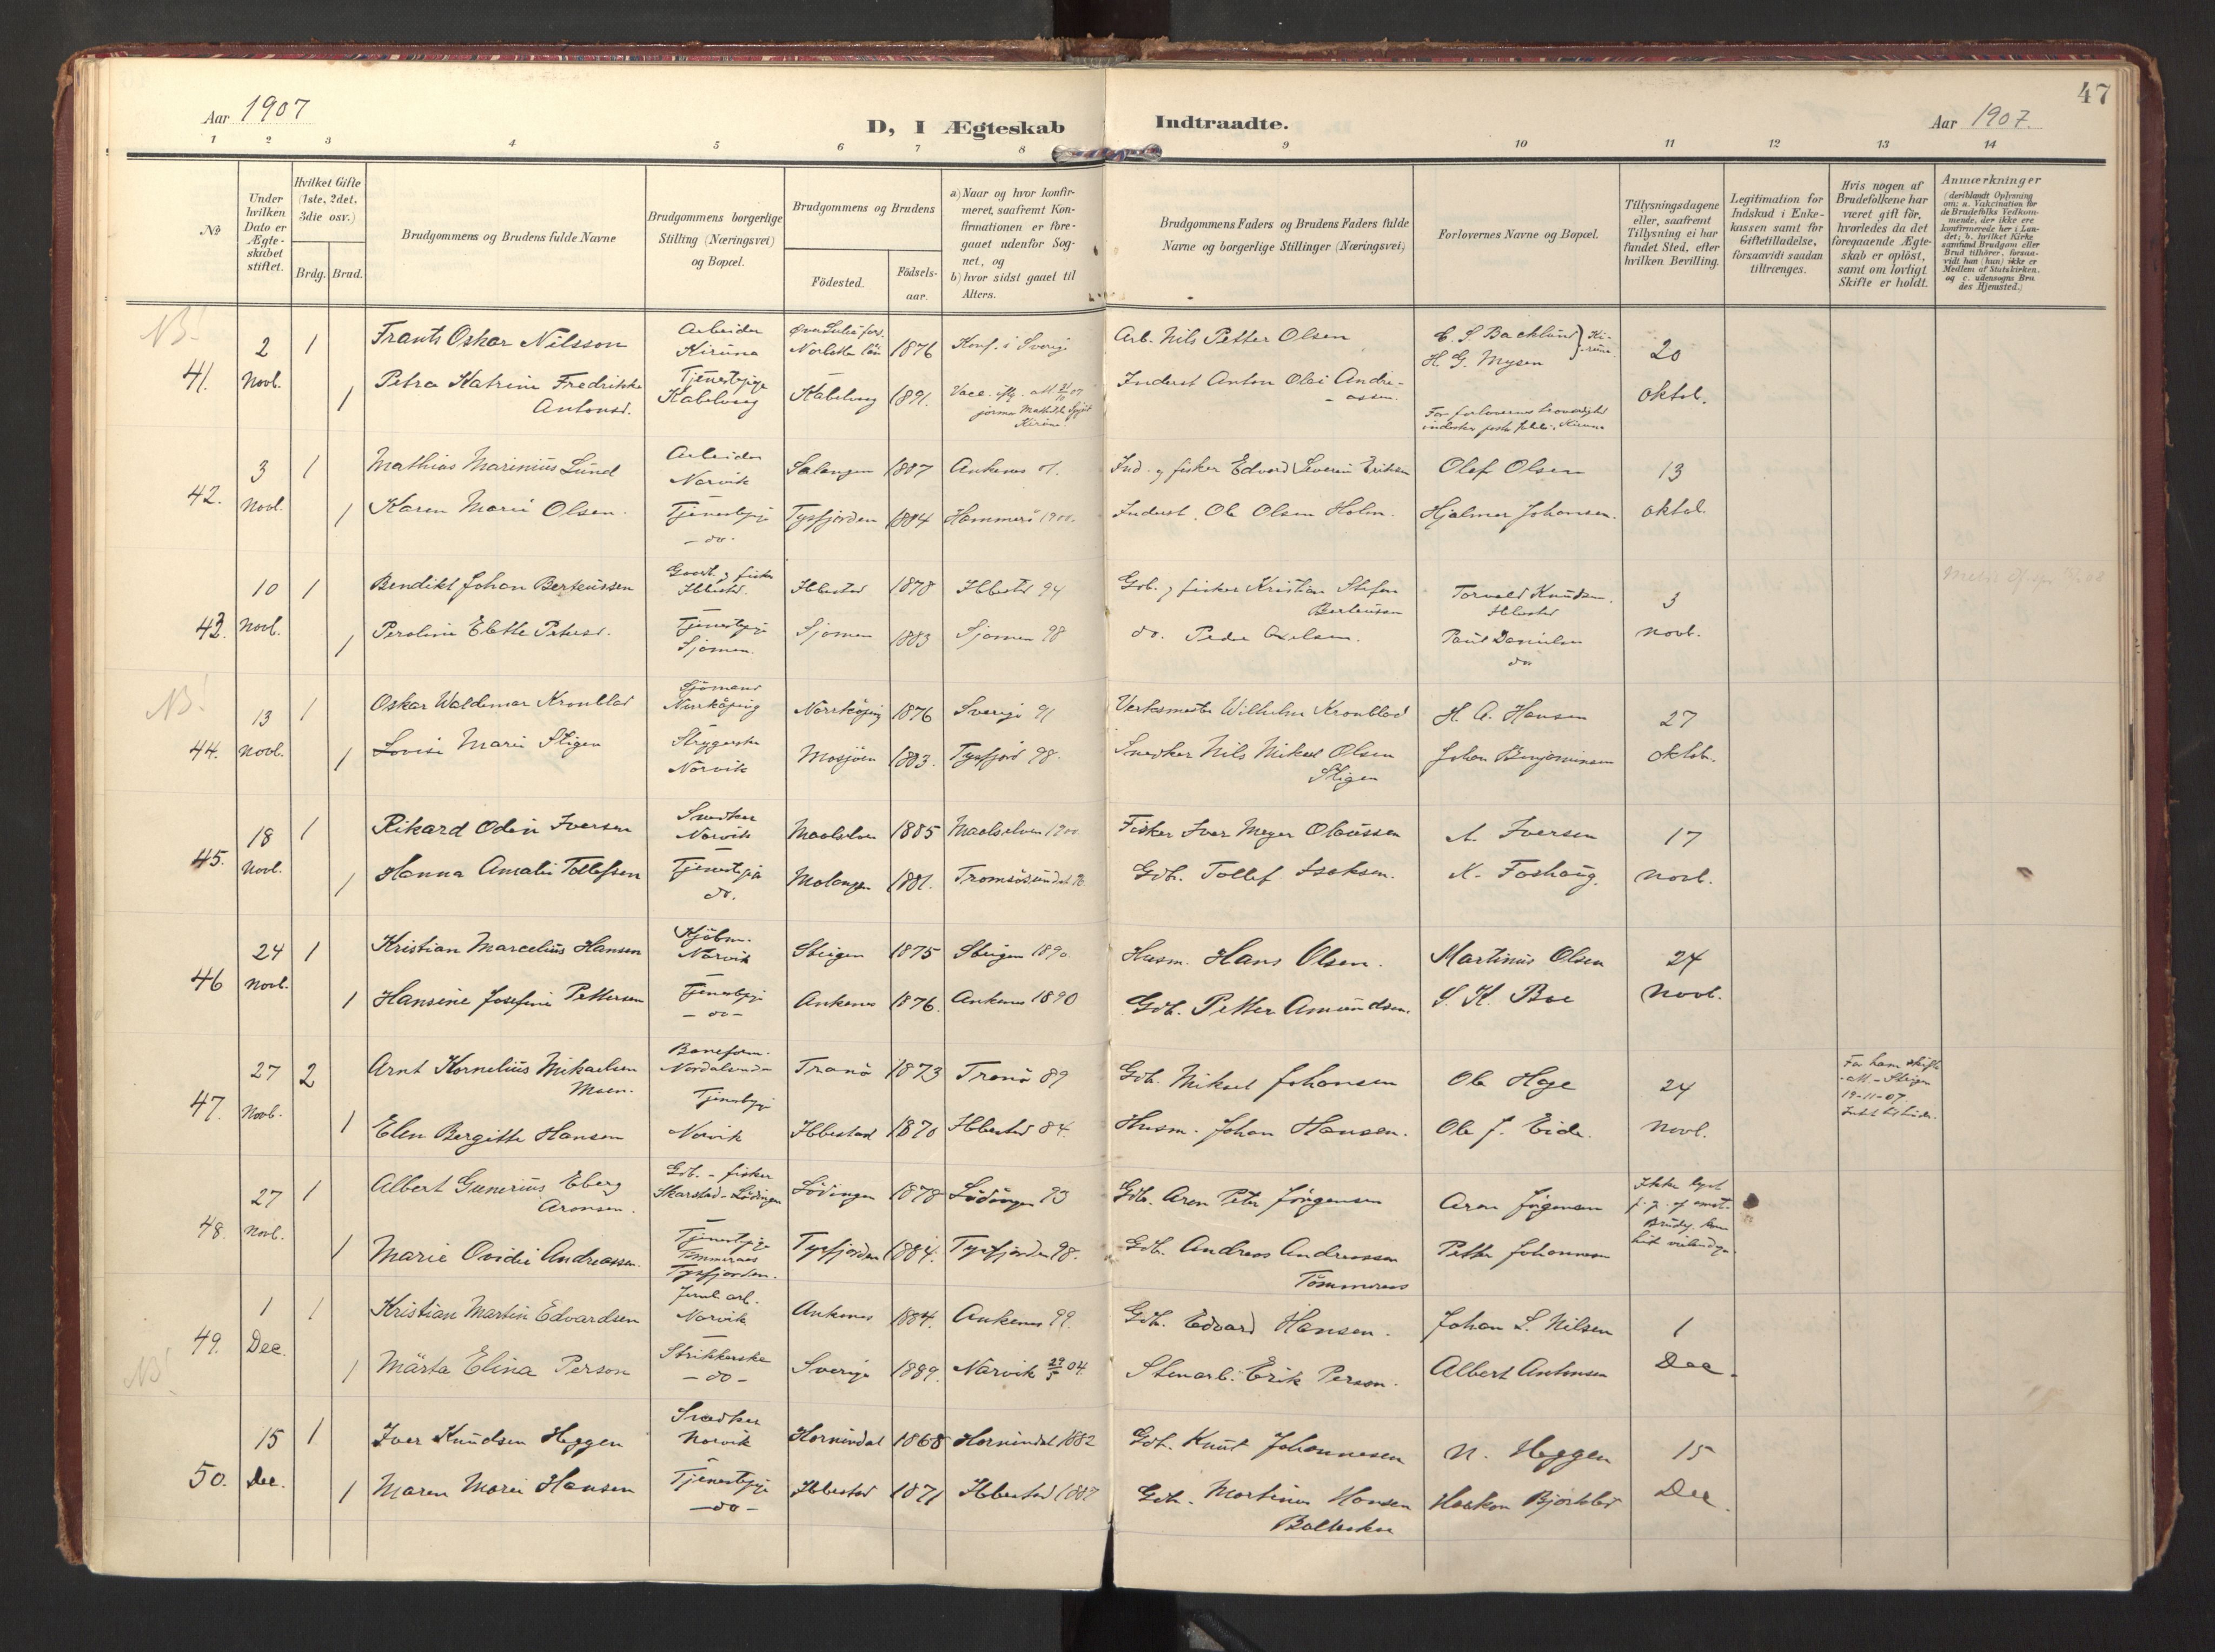 47
Aar 1907
D, I Ægteskab Indtraadte.
Aar 1907.
1 2 3 4 5 6 7 8 9 10 11 12 13 14
No
Under hvilken Dato er Ægteskabet stiftet.
Hvilket Gifte (1ste, 2det, 3die osv.)
Brdg. Brud.
Brudgommens og Brudens fulde Navne
Brudgommens borgerlige Stilling (Næringsvei) og Bopæl.
Brudgommens og Brudens
Födested.
Födselsaar.
a) Naar og hvor konfirmeret, saafremt Konfirmationen er foregaaet udenfor Sognet, og
b) hvor sidst gaaet til Alters.
Brudgommens Faders og Brudens Faders fulde Navne og borgerlige Stillinger (Næringsvei)
Forlovernes Navne og Bopæl.
Tillysningsdagene eller, saafremt Tillysning ei har fundet Sted, efter hvilken Bevilling.
Legitimation for Indskud i Enkekassen samt for Giftetilladelse, forsaavidt saadan tiltrænges.
Hvis nogen af Brudefolkene har været gift för, hvorledes da det foregaaende Ægteskab er oplöst, samt om lovligt Skifte er holdt.
Anmærkninger
(deriblandt Oplysning om: a. Vakcination for de Brudefolks Vedkommende, der ikke ere konfirmerede her i Landet; b. hvilket Kirkesamfund Brudgom eller Brud tilhörer, forsaavidt han (hun) ikke er Medlem af Statskirken, og c. udensogns Brudes Hjemsted.)
NB!
41. 2 Novb. 1 Frants Oskar Nilsson Arbeider Kiruna 1876 Konf. i Sverige Arb. Nils Petter Olsen H. G. Mysen 20 oktob.
1 Petra Katrine Fredrikke Antonsd. Tjenestepige Kabelvaag Kabelvaag 1891. Inderst Anton Olai Andreassen.
42. 3 Novb. 1 Mathias Marinius Lund Arbeider Narvik Salangen 1887 Ankenes Ind. og fisker Edvard Severin Eriksen Olef Olsen 13 oktob.
1 Karen Marie Olsen. Tjenestepige - do. Tysfjorden 1884 Hammerö 1900. Inderst Ole Olsen Holm. Hjalmar Johansen.
43. 10 Novb. 1 Bendikt Johan Berteussen Gaarb. og fisker Ibbestad. Ibbestad 1878 Ibbestad 94 Gdb. og fisker Kristian Stefen Berteussen Torvald Knudsen. Ibbestad 3 Novb.
1 Peroline Elette Pedersd. Tjenestepige Sjomen. Sjomen 1883 Sjomen 98 do. Peder Axelsen. Paul Danielsen do
NB!
44. 13 Novb. 1 Oskar Waldemar Kronblad Sjömand Norrköping Norrköping 1876 Sverige 91 Verksmester Wilhelm Kronblad H. A. Hansen 27 oktob.
1 Lovise Marie Stigen Strygerske Narvik Mosjöen 1883. Tysfjord 98. Snedker Nils Mikael Olsen Stigen Johan Benjaminsen
45. 18 Novb. 1 Rikard Odin Iversen Snedker Narvik Maalselven 1885 Maalselven 1900 Fisker Iver Meyer Olaussen A. Iversen 17 Novb.
1 Hanna Amalie Tollefsen Tjenestepige do. Malangen 1881. Tromsösundet Gdb. Tollef Isaksen. K. Foshaug.
46 24 Novb. 1 Kristian Marcelius Hansen Kjöbm. Narvik Steigen 1875 Steigen 1890 Husm. Hans Olsen. Martinus Olsen 24 Novb.
1 Hansine Josefine Pettersen Tjenestepige - do - Ankenes 1876. Ankenes 1890 Gdb. Petter Amundsen. S. K. Boe
47. 27 Novb. 2 Arnt Kornelius Mikaelsen Moen. Baneform. Nordalen Tranö 1873 Tranö 89 Gdb. Mikael Johansen Ole Hage 24 Novb. For ham skifte
19-11-07.
1 Elen Bergitte Hansen Tjenestepige Narvik Ibbestad 1870 Ibbestad 84. Husm. Johan Hansen. Ole J. Eide.
48. 27 Novb. 1 Albert Gunerius Eberg Aronsen. Gdb. - fisker Skarstad - Lödingen Lödingen 1878 Lödingen 93 Gdb. Aron Peter Jörgensen Aron Jörgensen Ikke lyst
1 Marie Ovidie Andreassen. Tjenestepige Tömmernes Tysfjorden. Tysfjorden 1884. Tysfjorden 98. Gdb. Andreas Andreassen Tömmernes Petter Johannesen
49. 1 Dec. 1 Kristian Martin Edvardsen Jernb. arb. Narvik Ankenes 1884. Ankenes 99. Gdb. Edvard Hansen. Johan L. Nilsen 1 Dec.
NB!
1 Märta Elina Person Strikkerske - do - Sverige 1889. Narvik 29/5 04. Stenarb. Erik Person. Albert Antonsen
50. 15 Dec. 1 Iver Knudsen Heggen Snedker Narvik Hornindal 1868 Hornindal 1882 Gdb. Knut Johannesen N. Heggen 15 Dec.
1 Maren Marie Hansen Tjenestepige - do - Ibbestad 1871 Ibbestad 1887 Gdb. Martinus Hansen Haakon